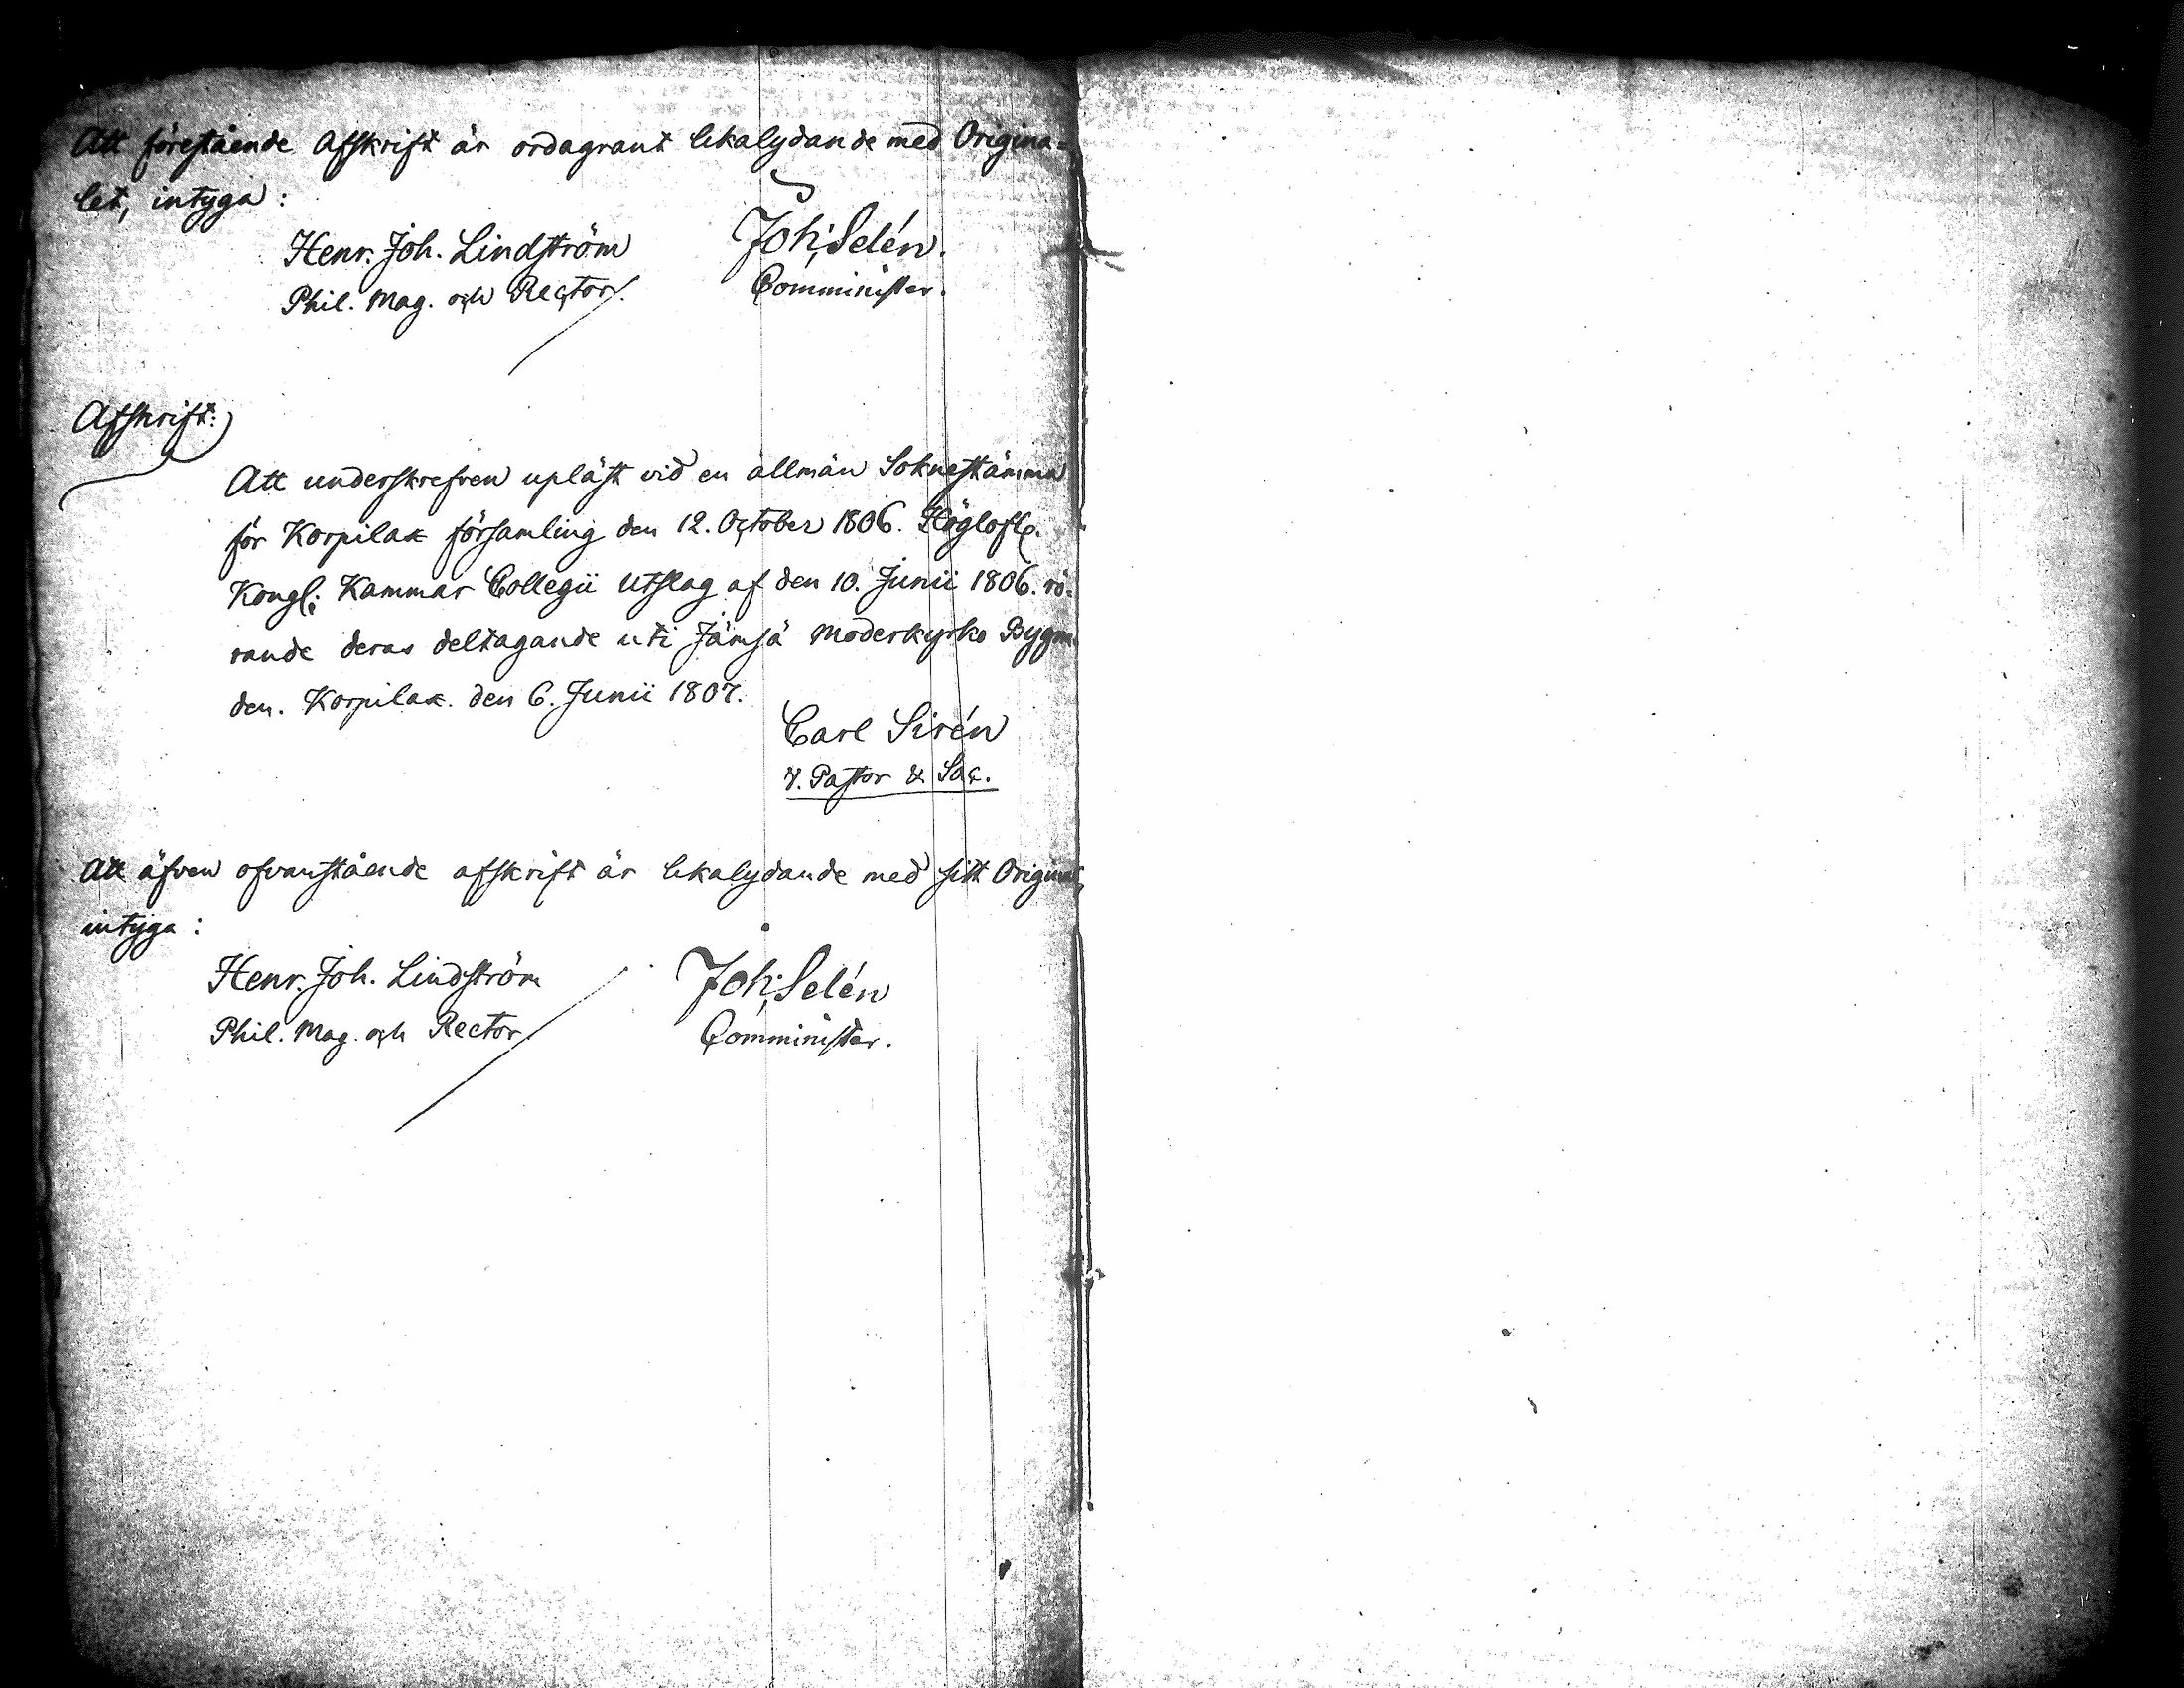 Att förestående Afskrift är ordagrant likalydande med Origina=
let, intyga:
Henr. Joh. Lindström
Phil. Mag. och Rector.
Joh; Selén.
Comminister.
Afskrift:
Att underskrefven upläst vid en allmän Soknestämma
för Korpilax församling den 12. October 1806. Höglofl.
Kongl; Kammar Collegii Utslag af den 10. Junii 1806. rö=
rande deras deltagande uti Jämsä Moderkyrko Bygna
den. Korpilax. den 6. Junii 1807.
Carl Sirén
V. Pastor & Sac.
Att äfven ofvanstående afskrift är likalydande med sitt Original,
intyga:
Henr. Joh. Lindström
Phil. Mag. och Rector.
Joh; Selén
Comminister.